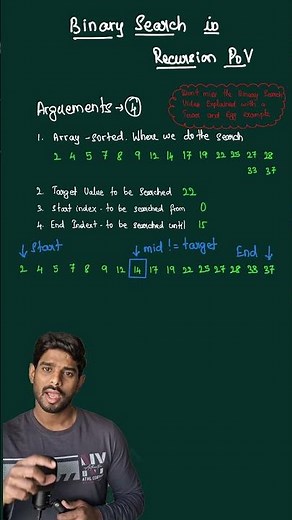 Binary Search in
Recursion PoV
Don't miss the Binary Search
Video Explained with a
Torch and Egg example
Arguements → 4
1. Array - Sorted. Where we do the search
2 4 5 7 8 9 12 14 17 19 22 25 27 28
33 37
2. Target Value to be searched 22
3. Start index - to be searched from 0
4. End Index - to be searched until 15
Start mid != target End
2 4 5 7 8 9 12 14 17 19 22 25 27 28 33 37